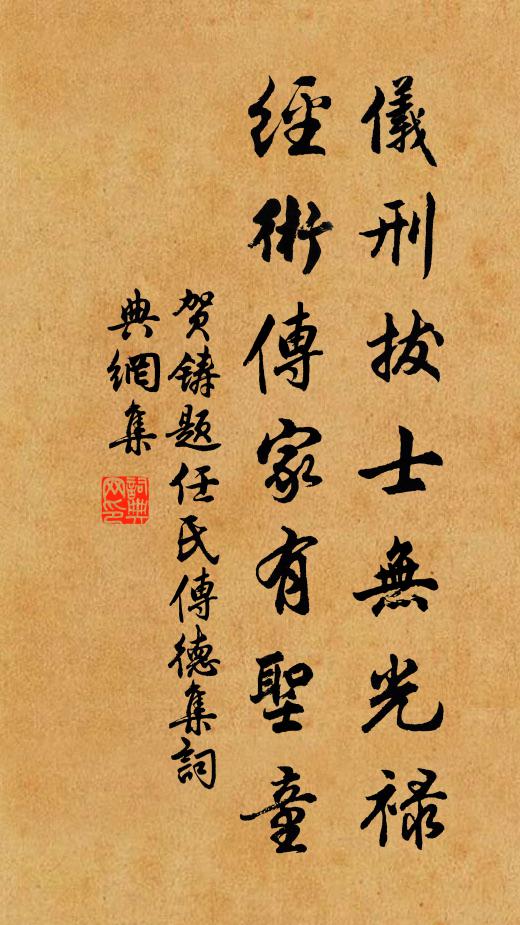 儀刑拔士無光祿
經術傳家有聖童
贺鑄題任民傳德集詞
典網集
詞典網印